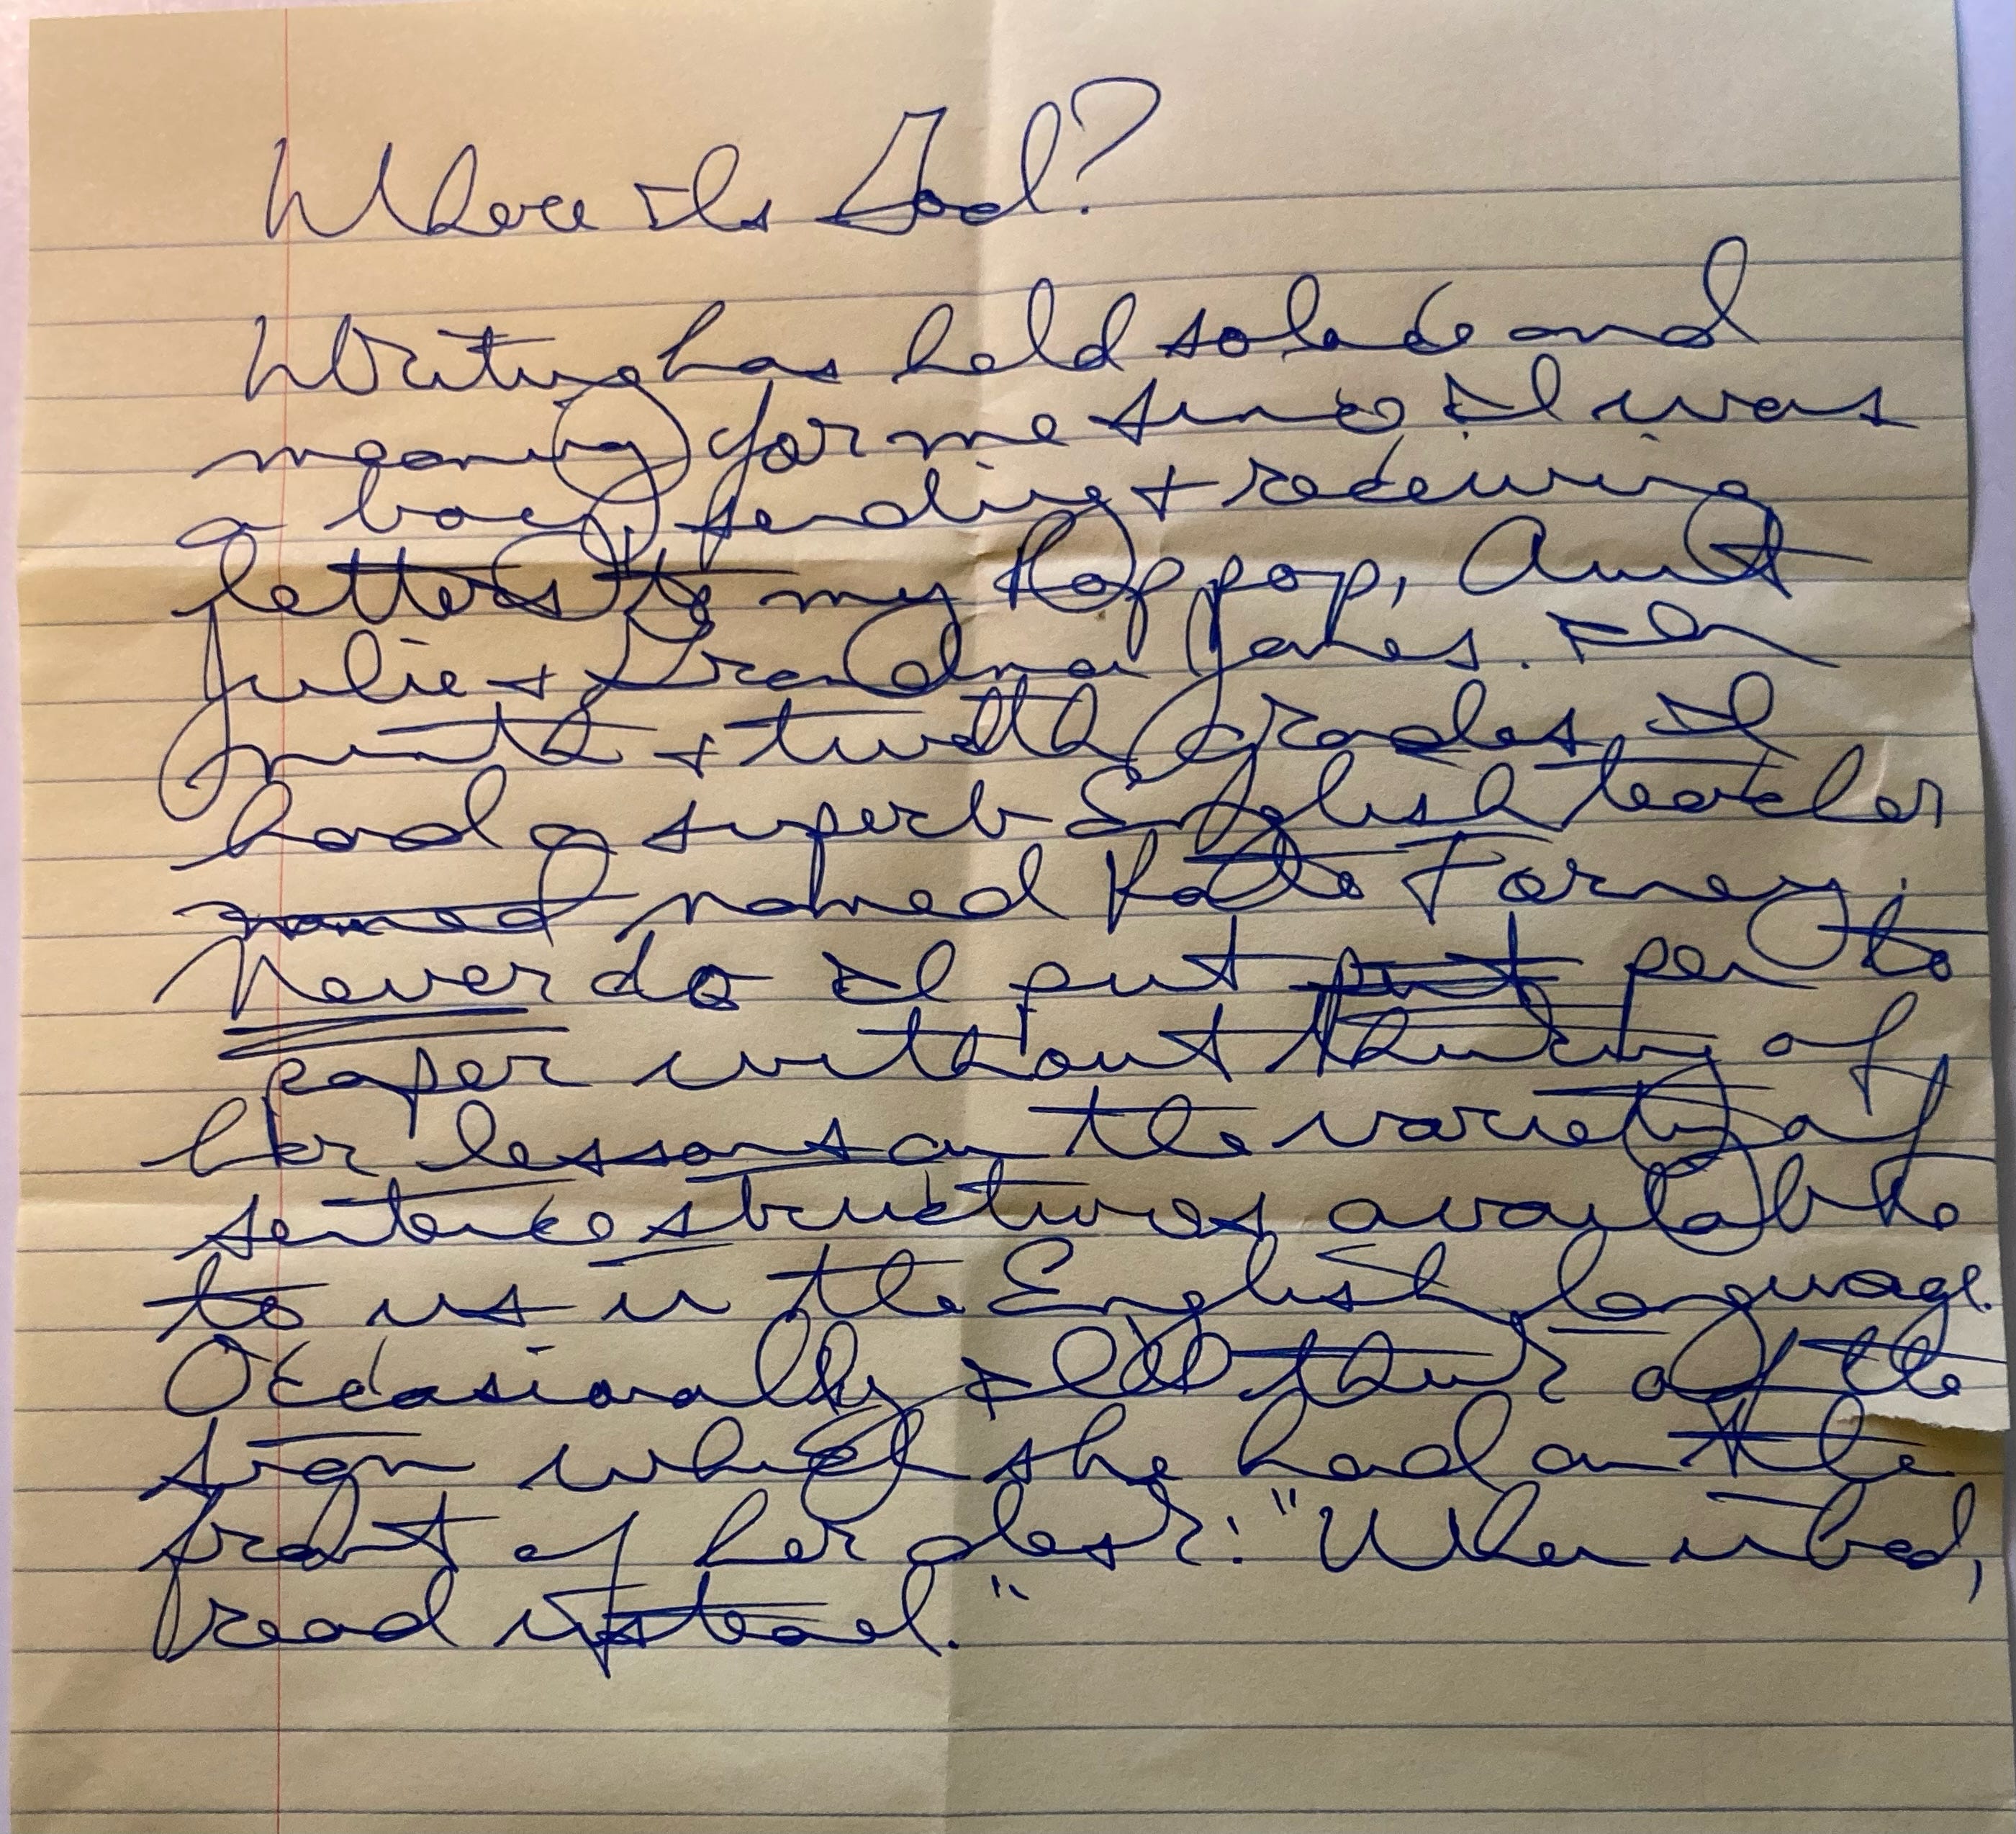 Where is God?
Writing has held solace and
meaning for me since I was
a boy, sending + receiving
letters to my Poppop, Aunt
Julie + Grandma Janes. In
ninth + twelfth grades, I
had a superb English teacher
named named Forney.
Never do I put put pen to
paper without thinking of
her lessons on the variety of
sentence structures available
to us in the English language.
Occasionally I'll think of the
sign which she had on the
front of her desk: "When in bed,
read instead."